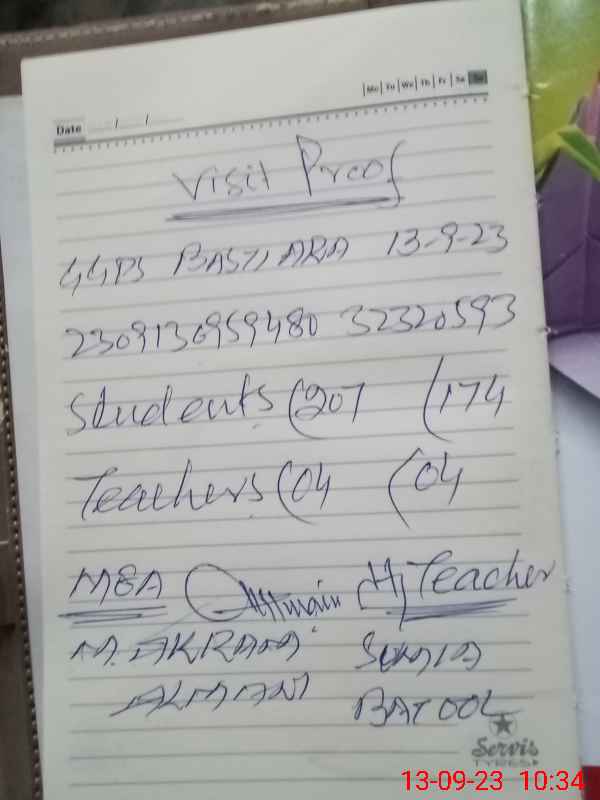 Mo Tu We Th Fr Sa Su
Date / /
Visit Proof
GGPS BASTI ARA 13-9-23
2309130959480 32320593
Students (207 (174
Teachers (04 (04
MEA H/Teacher
M. AKRAM SUMIA
ALMANI BATOOL
Servis
TYRES
13-09-23 10:34